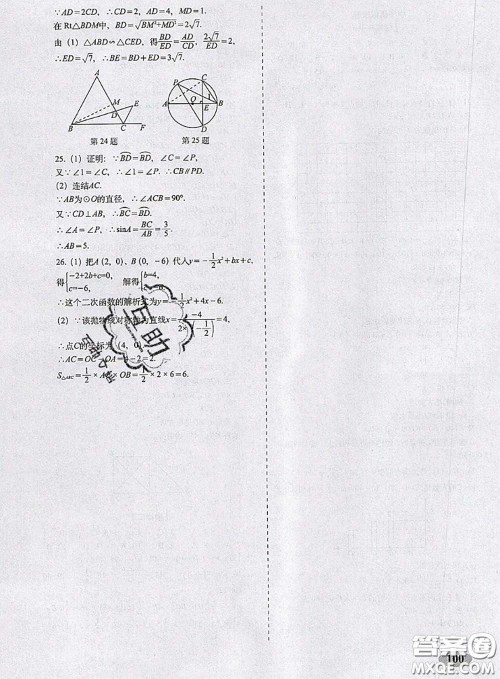 ∵AD=2CD, ∴CD=2, AD=4, MD=1.
在 Rt△BDM中, BD=√(BM²+MD²)=2√7.
由 (1) △ABD∽△CED, 得BD/ED=AD/CD, 2√7/ED=2,
∴ED=√7, ∴BE=BD+ED=3√7.
A
M
E
D
B
C
F
第24题
P
C
A
O
E
B
D
第25题
25. (1) 证明: ∵BD=BD, ∠C=∠P,
又∵∠1=∠C, ∴∠1=∠P. ∴CB∥PD.
(2) 连结AC.
∵AB为⊙O的直径, ∴∠ACB=90°.
又∵CD⊥AB, ∴BC=BD.
∴∠A=∠P, ∴sinA=BC/AB=3/5.
∴AB=5.
26. (1) 把A (2, 0)、B (0, -6) 代入y=-1/2x²+bx+c,
得{-2+2b+c=0, c=-6, 解得{b=4, c=-6.
∴这个二次函数的解析式为y=-1/2x²+4x-6.
(2) ∵该抛物线对称轴为直线x=-4/(2×(-1/2))=4,
∴点C的坐标为 (4, 0),
∴AC=OC-OA=4-2=2.
S△ABC=1/2×AC×OB=1/2×2×6=6.
互助
100
答案圈
MXQE.COM